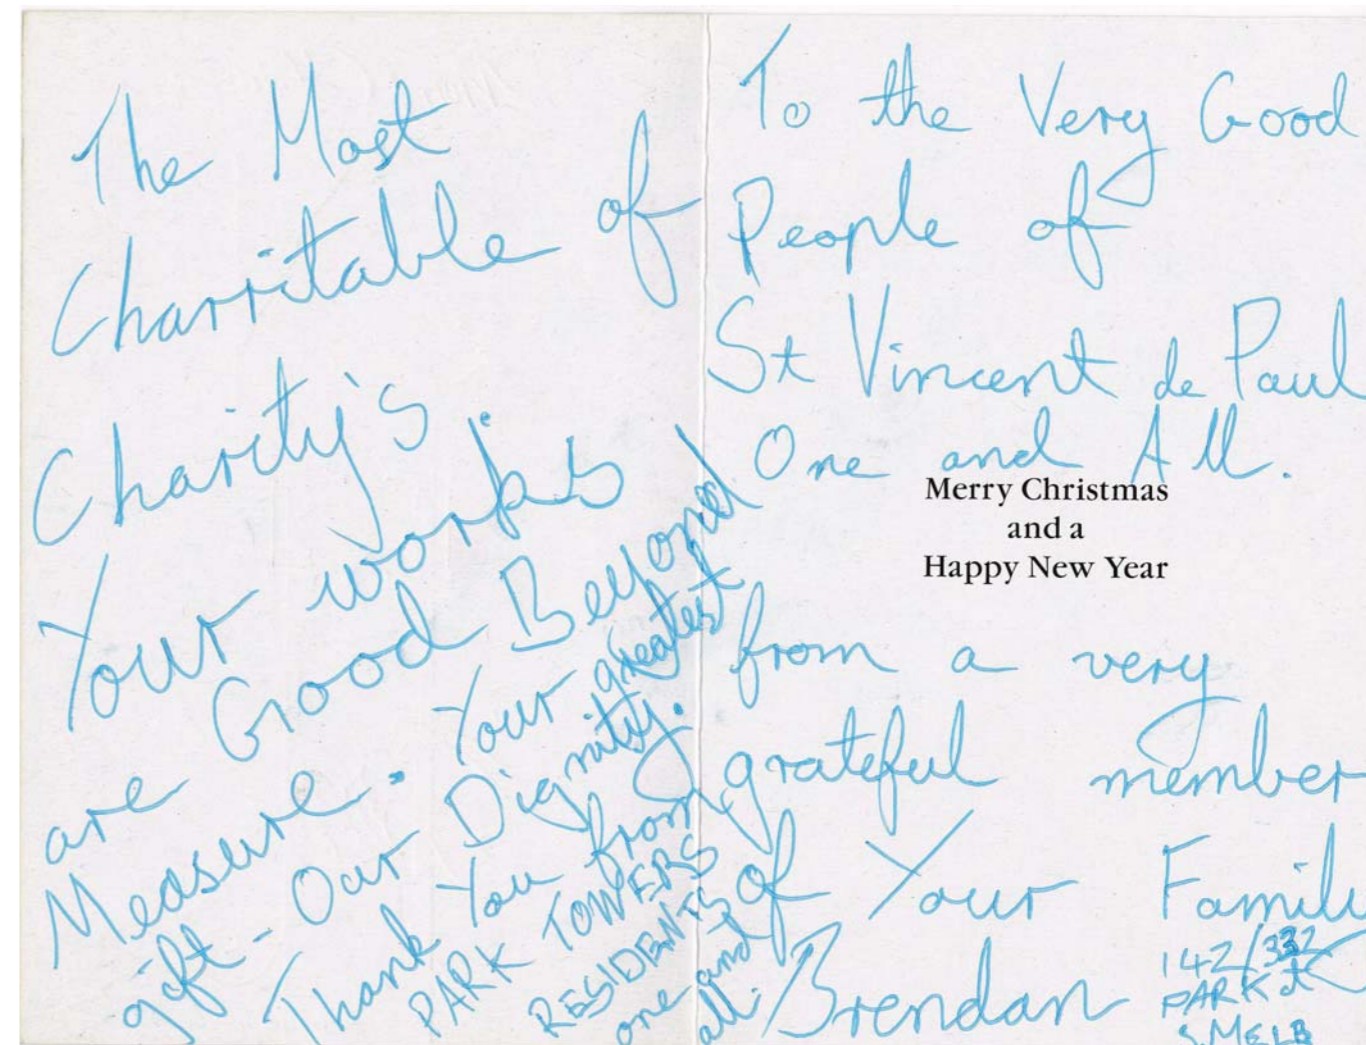 The Most
Charritable of
Charity's.
Your works
are Good Beyond
Measure. Your greatest
gift - Our Dignity.
Thank You from
PARK TOWERS
RESIDENTS
one and
all.
To the Very Good
People of
St Vincent de Paul
One and All.
Merry Christmas
and a
Happy New Year
from a very
grateful member
of Your Family
Brendan
142/332
PARK St
S. MELB